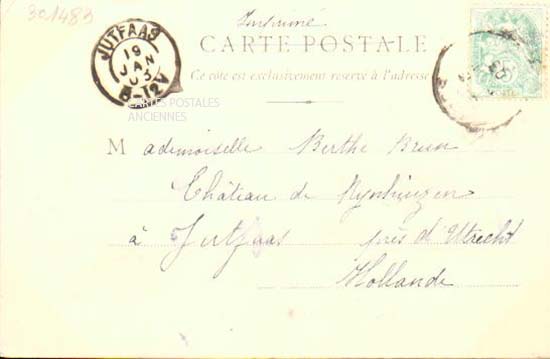 301483
Imprimé
JUTFAAS
19
JAN
03
8-12V
CARTE POSTALE
Ce côté est exclusivement réservé à l'adresse
CARTES POSTALES
ANCIENNES
Mademoiselle Berthe Brun
Château de Rynhuizen
à Jutfaas près d'Utrecht
Hollande